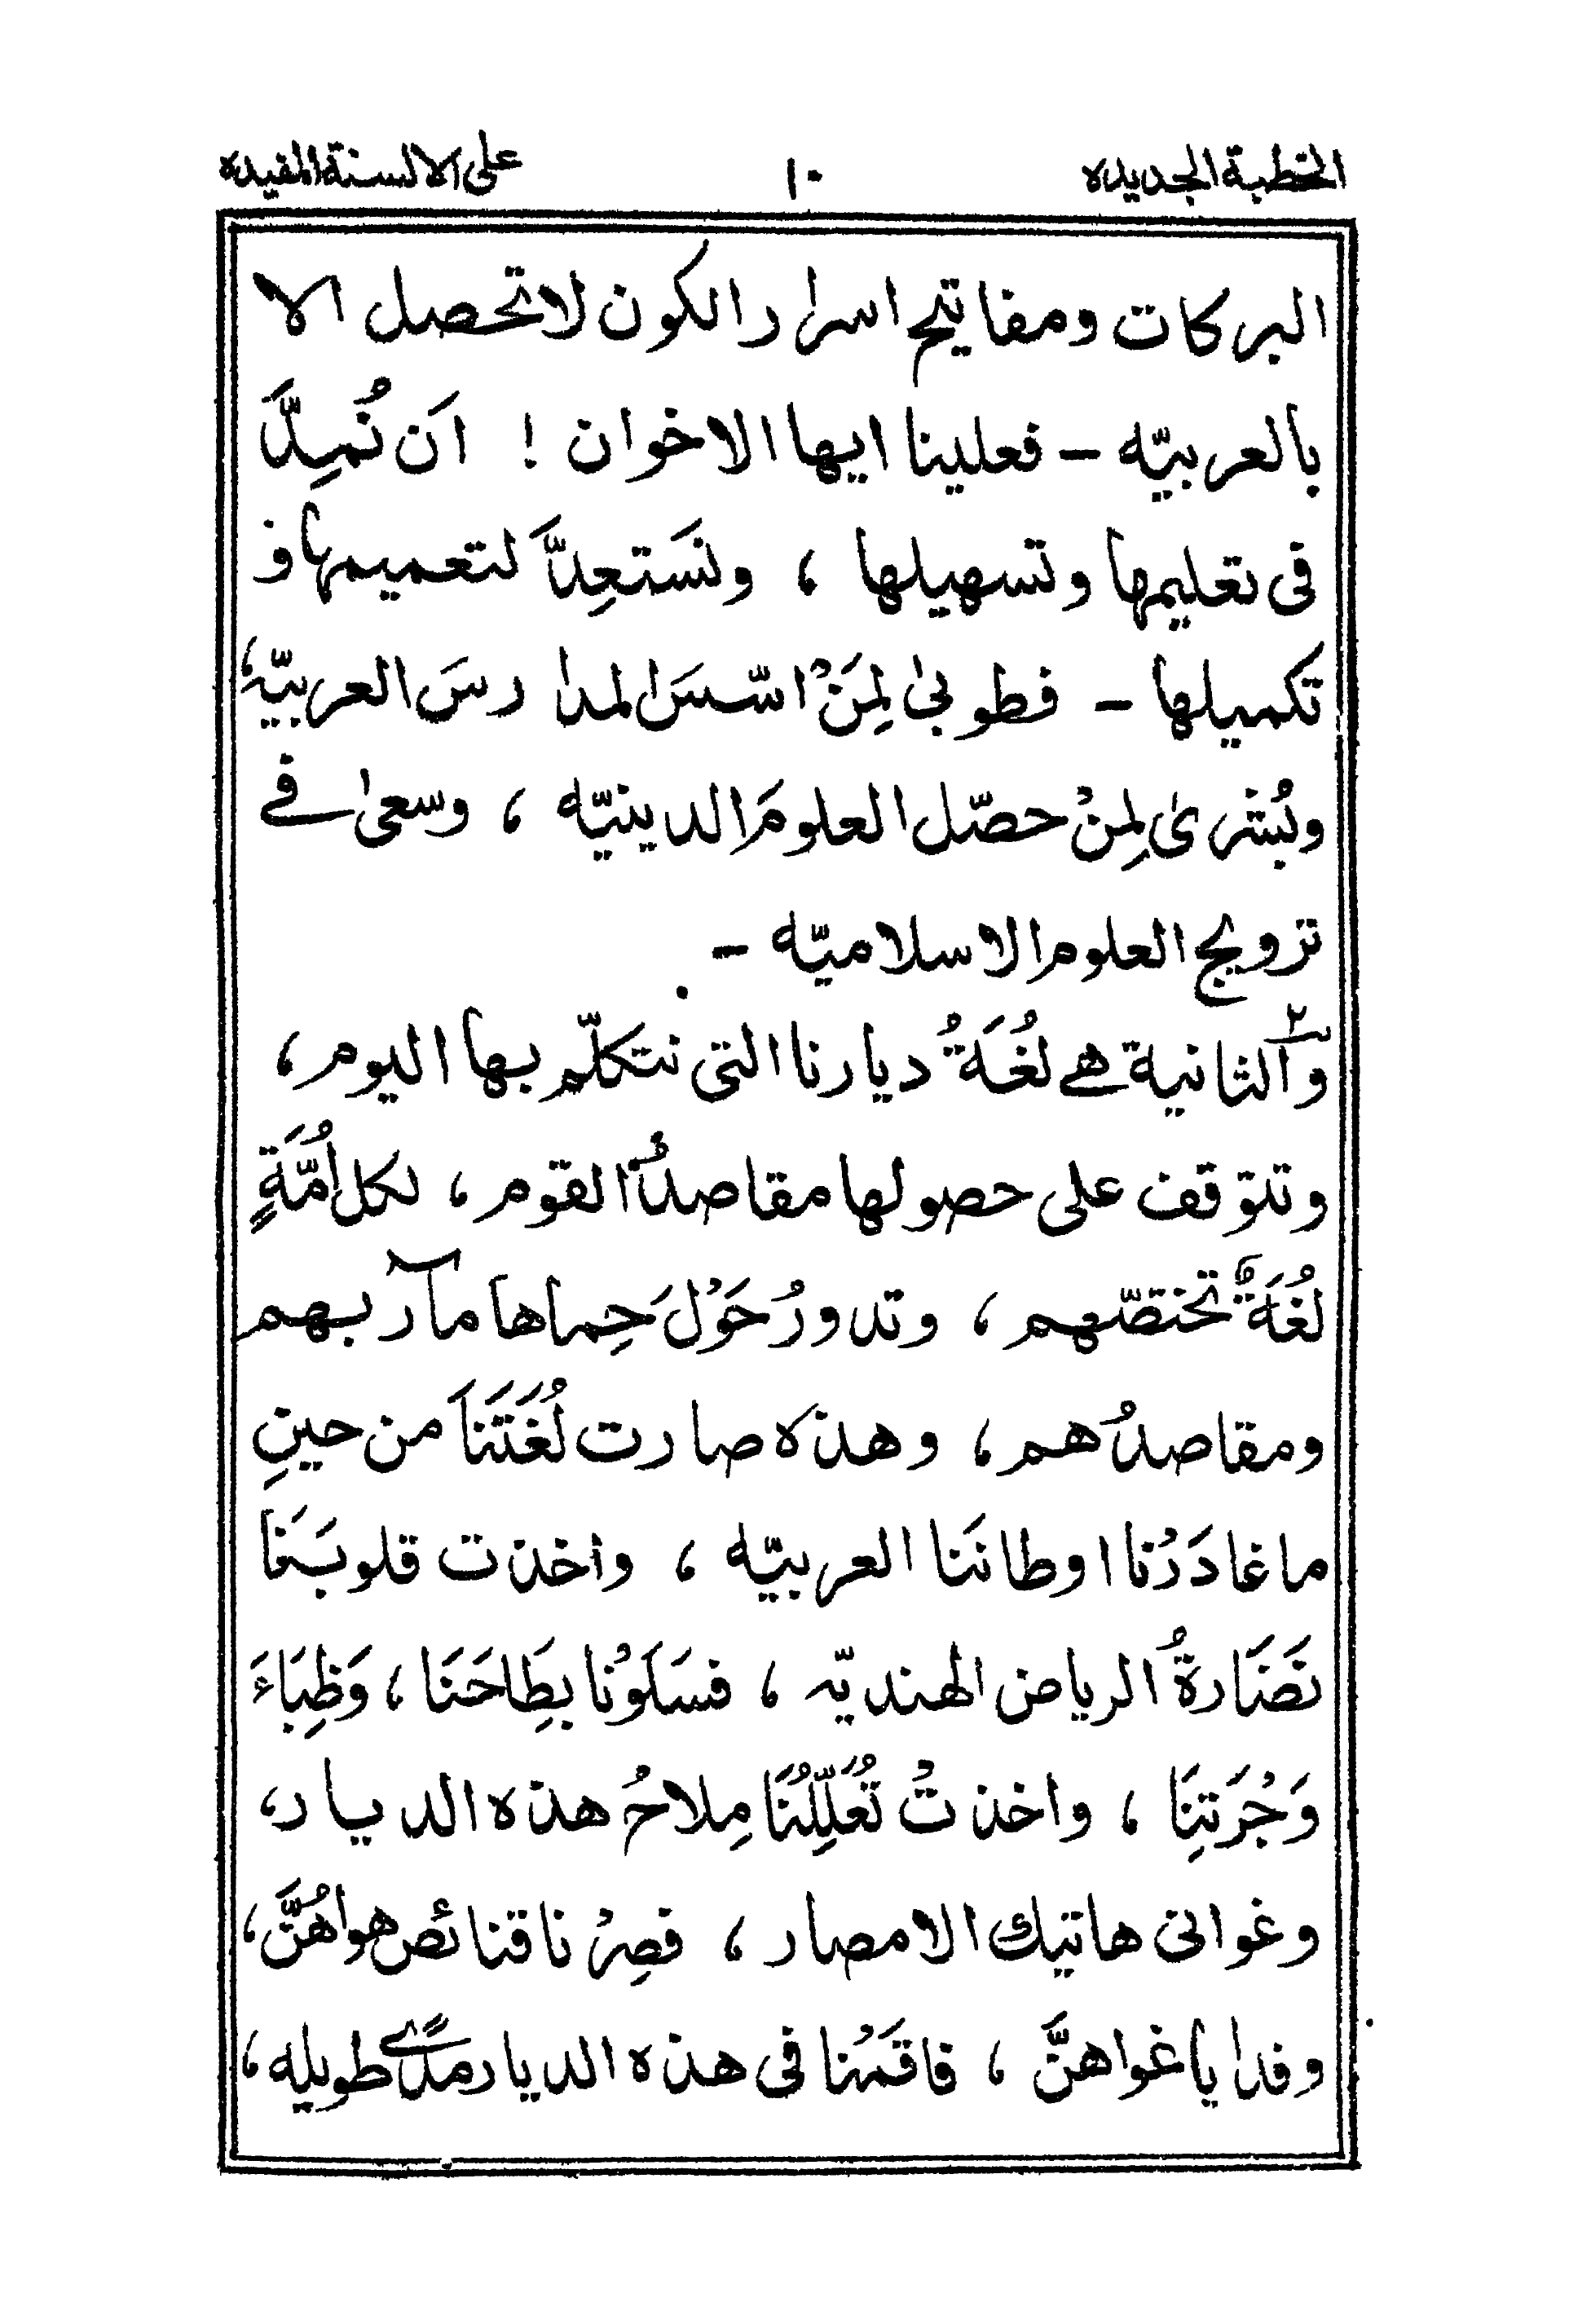 الخطبة الجديده ١٠ على الالسنة المفيده
البركات ومفاتيح اسرار الكون لا تحصل الا
بالعربيّه - فعلينا ايها الاخوان ! اَن نُمِدَّ
فى تعليمها وتسهيلها ، ونَستعِدَّ لتعميمها و
تكميلها - فطوبىٰ لِمَنْ اسّسَ المدارسَ العربيّه ،
وبُشرىٰ لِمنْ حصّل العلومَ الدينيّه ، وسعىٰ فے
ترويج العلوم الاسلاميّه -
٢ والثانية هے لُغَةُ ديارنا التى نتكلّم بها اليوم ،
وتتوقف على حصولها مقاصدُ القوم ، لكل اُمَّةٍ
لُغَةٌ تختصّهم ، وتدورُ حَوْلَ حِماها مآربهم
ومقاصدُهم ، وهذه صارت لُغَتَنَا من حينِ
ما غادَرْنا اوطانَنا العربيّه ، واخذت قلوبَنا
نَضَارةُ الرياض الهنديّه ، فسَلَوْنا بِطَاحَنَا ، وَظِبَاءَ
وَجْرَتِنَا ، واخذتْ تُعَلِّلُنَا مِلاحُ هذه الديار ،
وغوانى هاتيك الامصار ، فصِرْنا قنائص هواهُنَّ ،
وفدايا غواهنَّ ، فاقَمْنا فى هذه الديار مدًى طويله ،